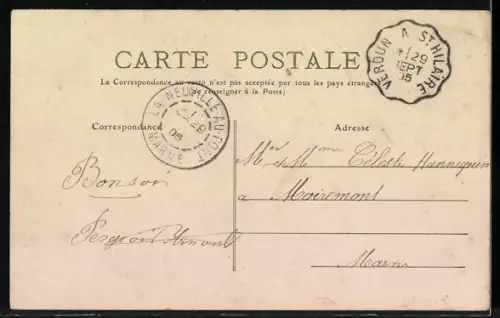 CARTE POSTALE
(La Correspondance au verso n'est pas acceptée par tous les pays étrangers
(Se renseigner à la Poste)
VERDUN A ST HILAIRE
29
SEPT
05
LA NEUVILLE-AU-PONT
29
05
MARNE
Correspondance
Adresse
Bonsoir
Mr et Mme Céleste Hannequin
a Moiremont
Marne